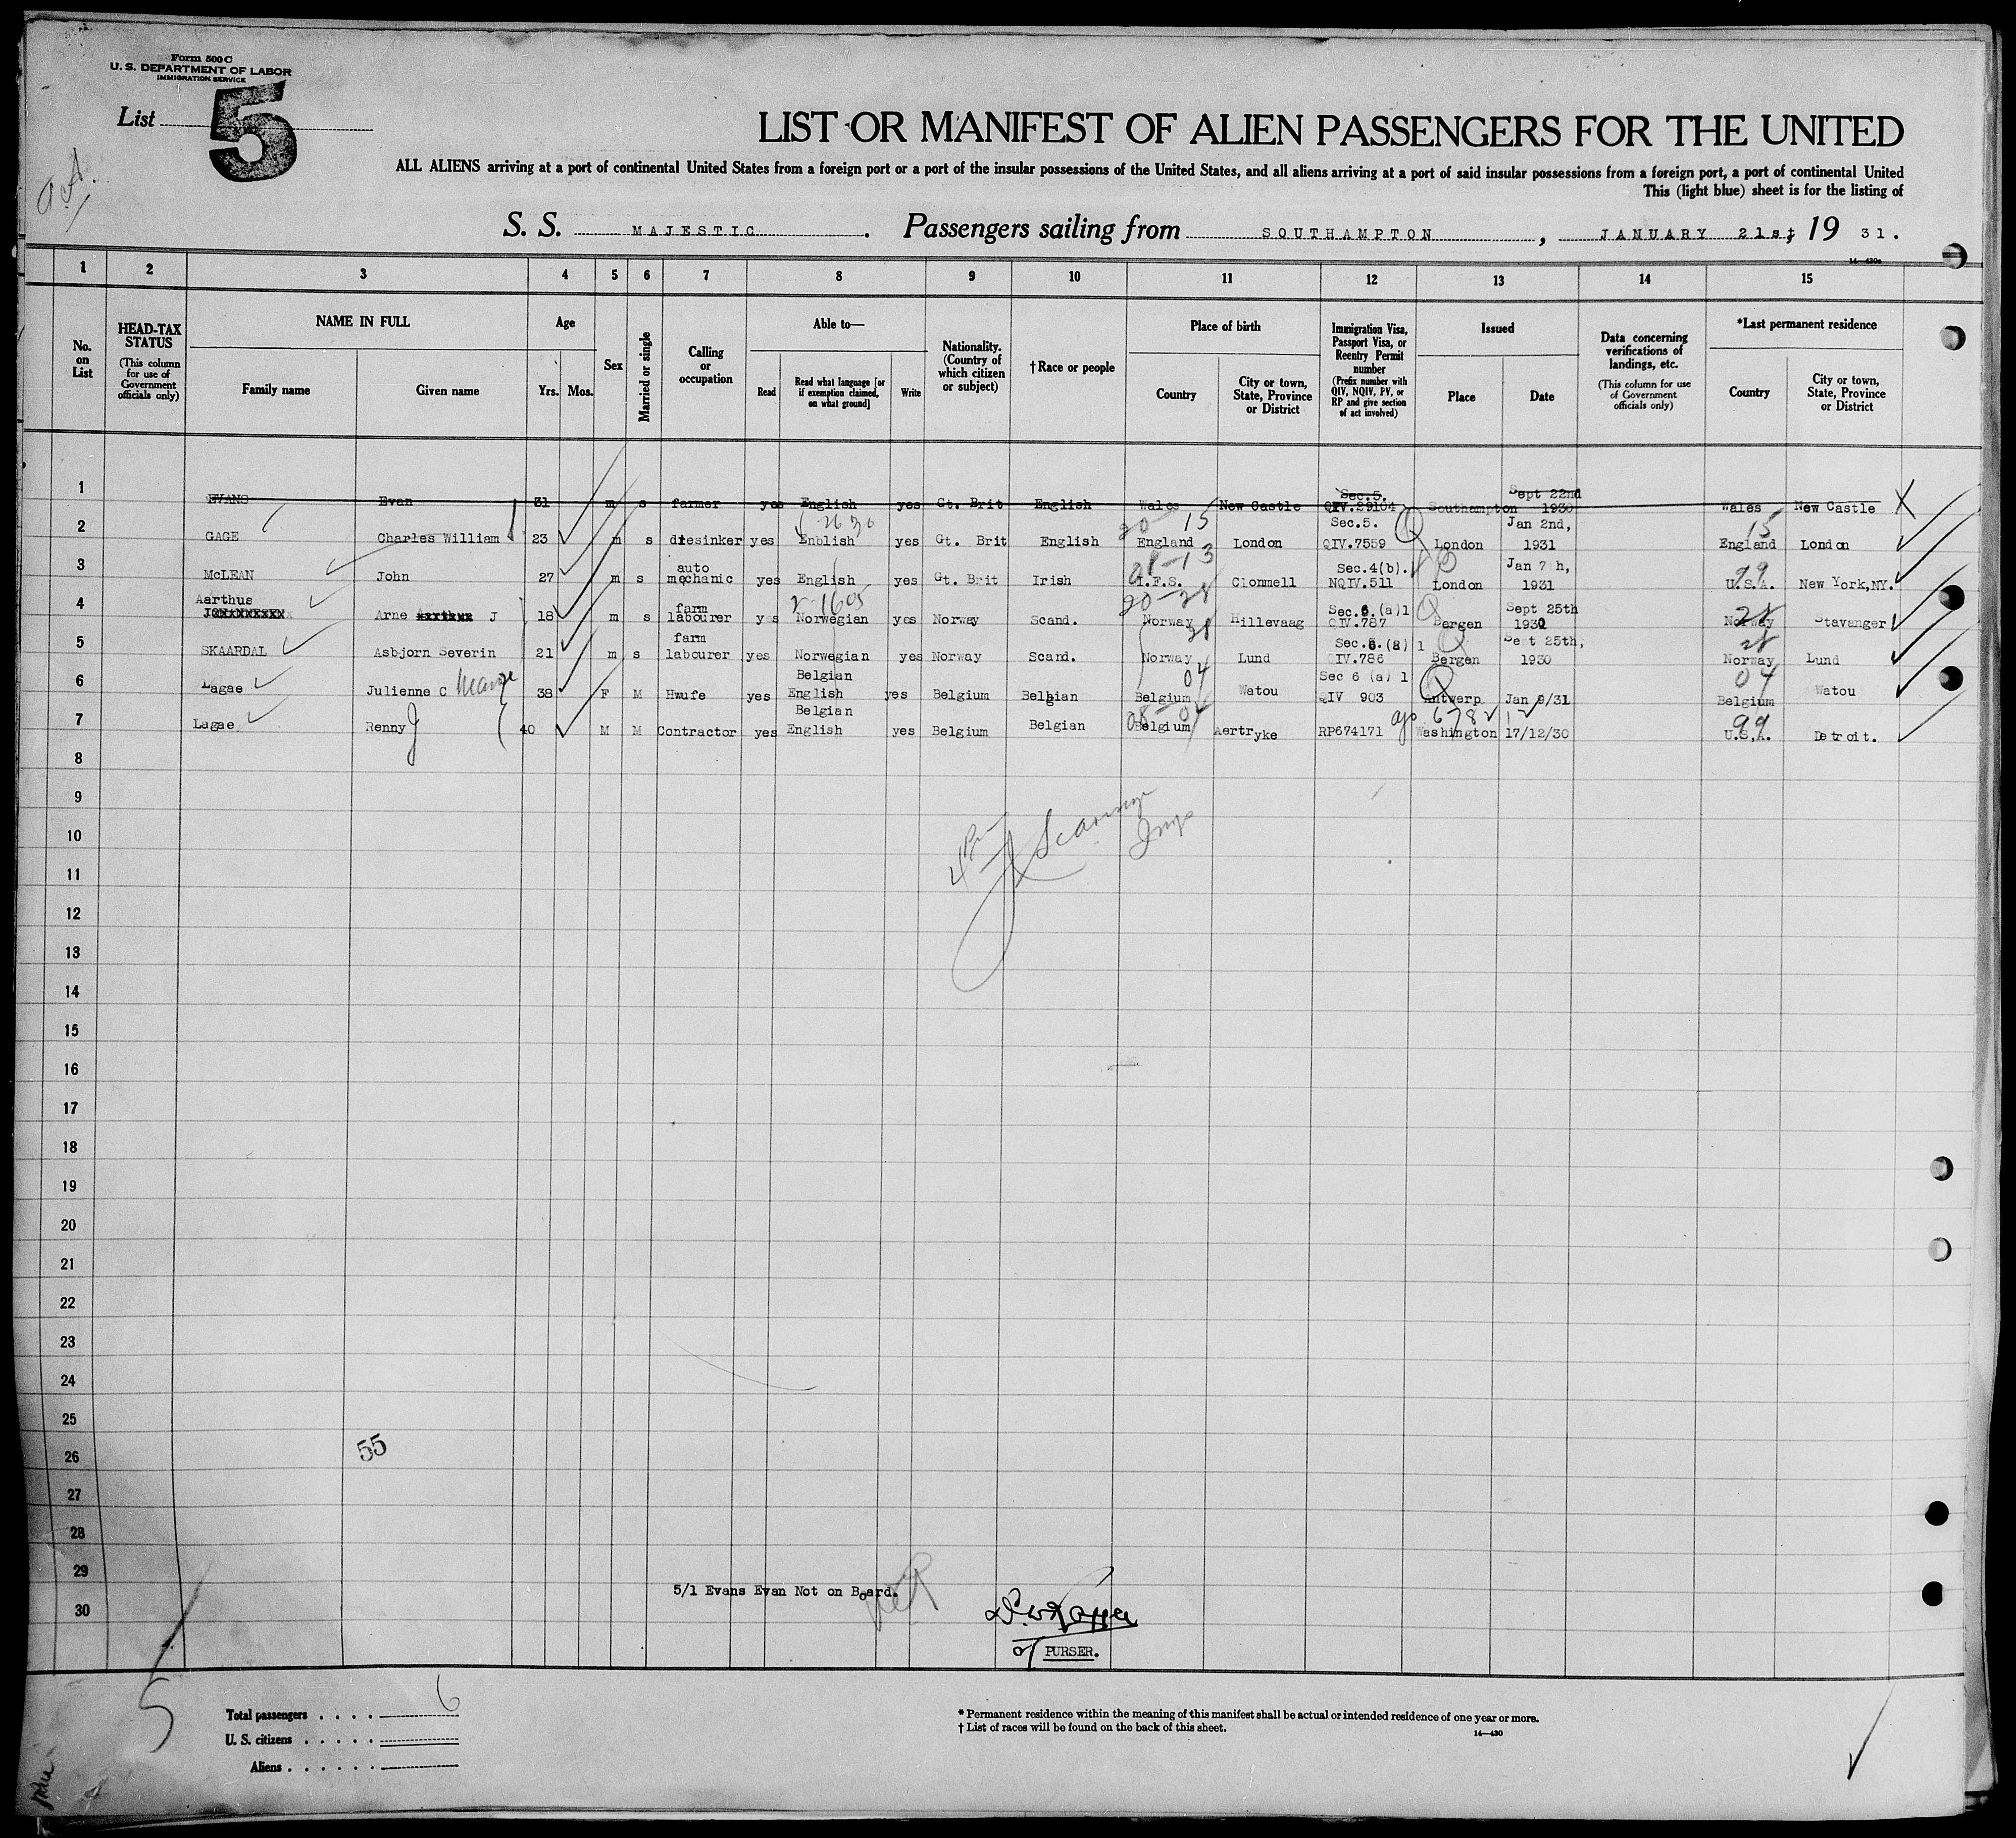 Form 500 C
U. S. DEPARTMENT OF LABOR
IMMIGRATION SERVICE
List 5
LIST OR MANIFEST OF ALIEN PASSENGERS FOR THE UNITED
ALL ALIENS arriving at a port of continental United States from a foreign port or a port of the insular possessions of the United States, and all aliens arriving at a port of said insular possessions from a foreign port, a port of continental United
This (light blue) sheet is for the listing of
S. S. MAJESTIC. Passengers sailing from SOUTHAMPTON, JANUARY 21st, 19 31.
14—430a
1 2 3 4 5 6 7 8 9 10 11 12 13 14 15
No. on List
HEAD-TAX STATUS
(This column for use of Government officials only)
NAME IN FULL
Family name Given name
Age
Yrs. Mos.
Sex
Married or single
Calling or occupation
Able to—
Read Read what language [or if exemption claimed, on what ground] Write
Nationality. (Country of which citizen or subject)
†Race or people
Place of birth
Country City or town, State, Province or District
Immigration Visa, Passport Visa, or Reentry Permit number
(Prefix number with QIV, NQIV, PV, or RP and give section of act involved)
Issued
Place Date
Data concerning verifications of landings, etc.
(This column for use of Government officials only)
*Last permanent residence
Country City or town, State, Province or District
Sec.5. Sept 22nd
1 EVANS Evan 31 m s farmer yes English yes Gt. Brit English Wales New Castle QIV.29104 Southampton 1930 Wales New Castle X
2630 20 15 Sec.5. Jan 2nd, 15
2 GAGE Charles William 23 m s diesinker yes Enblish yes Gt. Brit English England London QIV.7559 London 1931 England London
auto 08-13 Sec.4(b). Jan 7 h, 99
3 McLEAN John 27 m s mechanic yes English yes Gt. Brit Irish I.F.S. Clonmell NQIV.511 London 1931 U.S.A. New York,NY.
Aarthus farm 2 1605 20-28 Sec.6.(a)1 Sept 25th 28
4 Arne J 18 m s labourer yes Norwegian yes Norway Scand. Norway Hillevaag QIV.787 Bergen 1930 Norway Stavanger
farm 28 Sec.6.(a) 1 Sept 25th, 28
5 SKAARDAL Asbjorn Severin 21 m s labourer yes Norwegian yes Norway Scand. Norway Lund QIV.786 Bergen 1930 Norway Lund
Belgian 04 Sec 6 (a) 1 04
6 Lagae Julienne C Marie 38 F M Hwufe yes English yes Belgium Belgian Belgium Watou QIV 903 Antwerp Jan 9/31 Belgium Watou
Belgian 08-04 6782 12 99
7 Lagae Renny J 40 M M Contractor yes English yes Belgium Belgian Belgium Aertryke RP674171 Washington 17/12/30 U.S.A. Detroit.
8
9
10
11
12
13
14
15
16
17
18
19
20
21
22
23
24
25
26 55
27
28
29
5/1 Evans Evan Not on Board.
30
PURSER.
5
Total passengers . . . . 6
U. S. citizens . . . . .
Aliens . . . . . .
* Permanent residence within the meaning of this manifest shall be actual or intended residence of one year or more.
† List of races will be found on the back of this sheet.
14—430